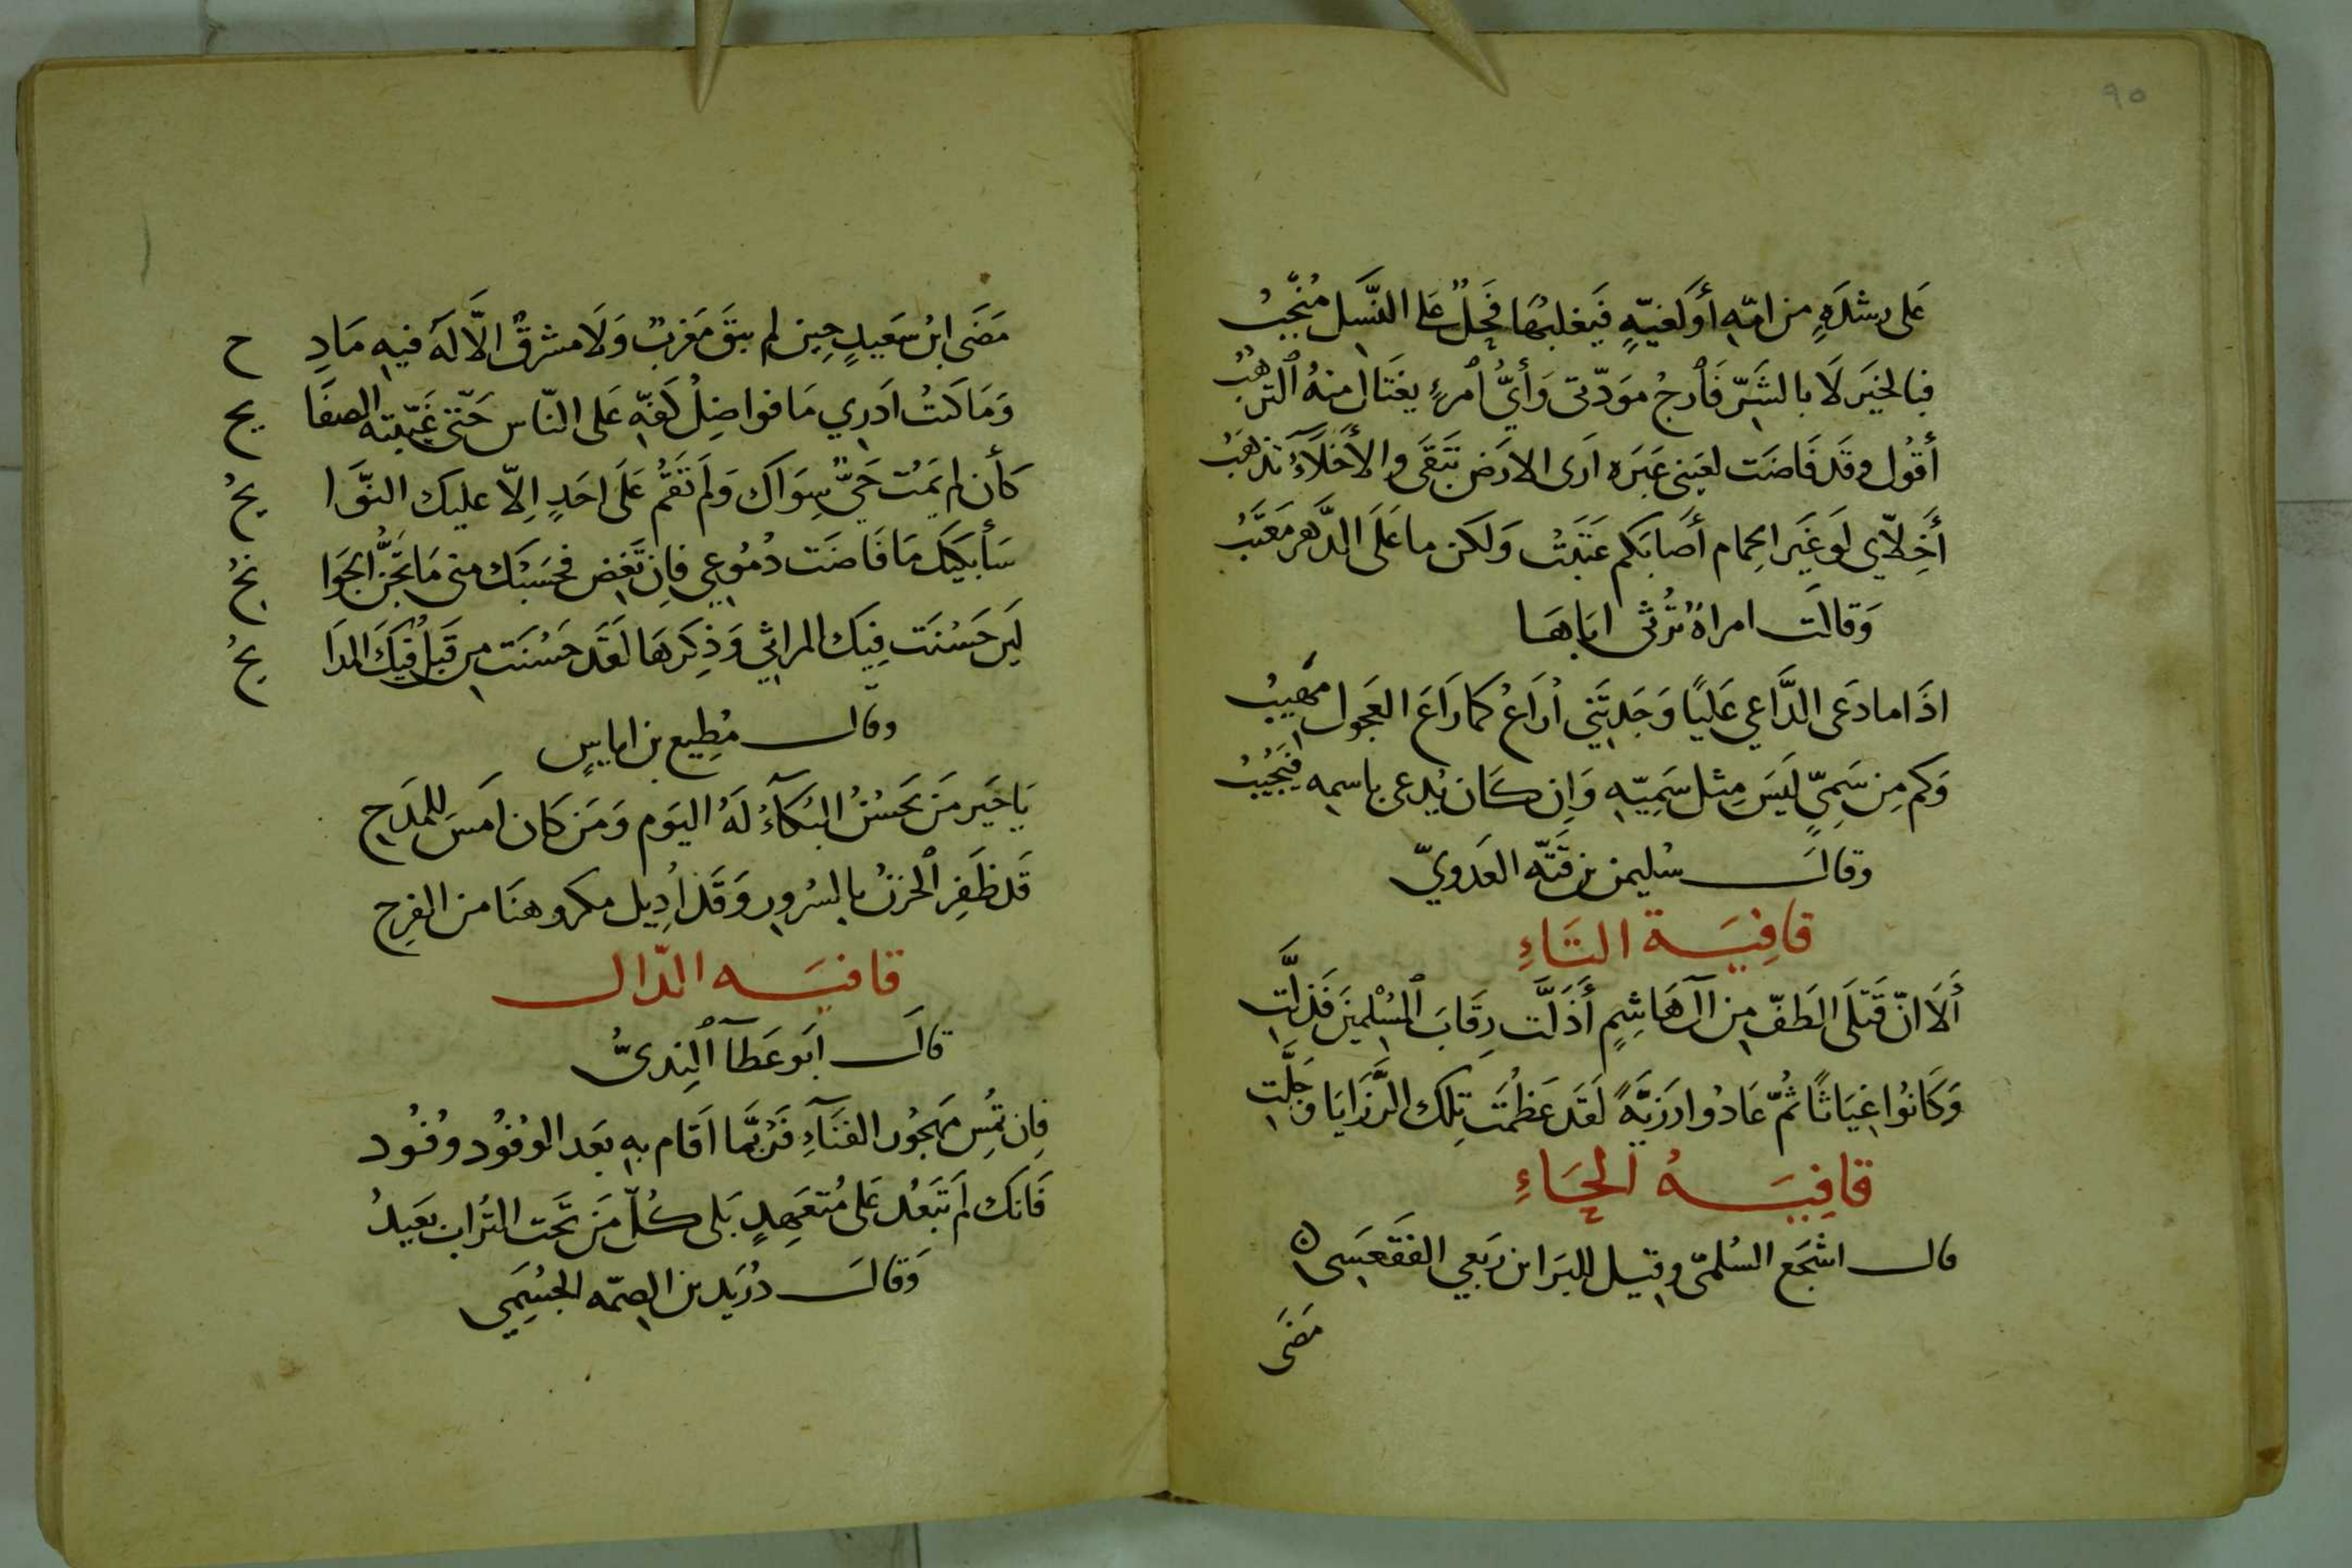 ٩٥
عَلى رِشْدَةٍ من امّهِ أوْ لغيّةٍ فَيَغلبهَا فَحلٌ عَلى النّسْلِ مُنْجِبُ
فبالخيَر لَا بالشَرّ فَارجُ مودّتى وَأيُّ امرءٍ يغتال منهُ الترهّبُ
أقولُ وقد فَاضَت لعَينى عَبَره ارَى الارَض تَبقَى والأخلَّاءُ تذهَبُ
أخِلّاي لوَ غَير الحِمام أصَابَكم عَتَبتُ وَلكن ما عَلَى الدَّهر مَعتَبُ
وَقالَت امراةٌ تَرُثى ابَاهَا
اذَا ما دَعَى الدَّاعي عَليًا وَجَدتَني ارُاعُ كمَا رَاعَ العَجول مهُيبُ
وَكم مِن سَمِيٍّ لَيسَ مِثل سَمِيّهِ وَإن كَان يُدعى باسمه فيَجُيبُ
وقالَ سُليمن بن قَتّه العَدويّ
قافِيَة التَاءِ
ألَا انّ قَتلَى الطَفّ مِن آل هَاشِمٍ أذَلَّت رِقَابَ المُسْلمينَ فَذلَّتِ
وَكَانوُا غيَاثًا ثُمّ عَادُوا رَزيَّةً لَقَد عَظُمَت تِلك الرَّزَايَا وجَلَّتِ
قافِيَةُ الحَاءِ
قال اشجَع السُلمىّ وقيل للبَرا بن رَبعي الفَقعَسى
مَضَى
مَضَى ابنُ سعَيدٍ حِين لم يبقَ مَغربٌ وَلَا مشرقٌ الّا لَهُ فيهِ مَادِحُ
وَمَا كنتُ ادَري مَا فواضِلُ كَفّهِ عَلى النّاس حَتّى غَيّبته الصفَايحُ
كَأن لم يَمُت حَيٌّ سِوَاكَ وَلَم تَقُم عَلَى احَدٍ إلّا عليك النوَّايحُ
سَأبكيَك مَا فَاضَت دُمُوعِي فإن تَغِض فحَسَبُك منى مَا تَجُنُّ الجَوَانحُ
لَئِن حَسُنَت فِيَك المراثي وَذِكرَهَا لَقَد حَسُنَت من قَبلُ فيكَ المدَايحُ
وقال مُطِيع بن اياسٍ
يَا خَير مَن يَحَسُنُ البُكَآءُ لَهُ اليَوم وَمَن كَان امَس للمَدَحِ
قَد ظَفِر الحزنُ بالسُرورِ وَقَد أدِيل مكروهنَا من الفَرِح
قافيَه الدّال
قالَ ابَو عَطآ السِنديُّ
فان تُمسِ مهجُور الفنَآءِ فَرُبَّما اَقام بهِ بعَد الوفُود وفُود
فَانكَ لَم تَبعُد عَلى مُتعَهِدٍ بَلى كُلّ مَن تَحت التُراب بعَيدُ
وَقالَ دُرَيد بن الصِمّه الجشُمَي